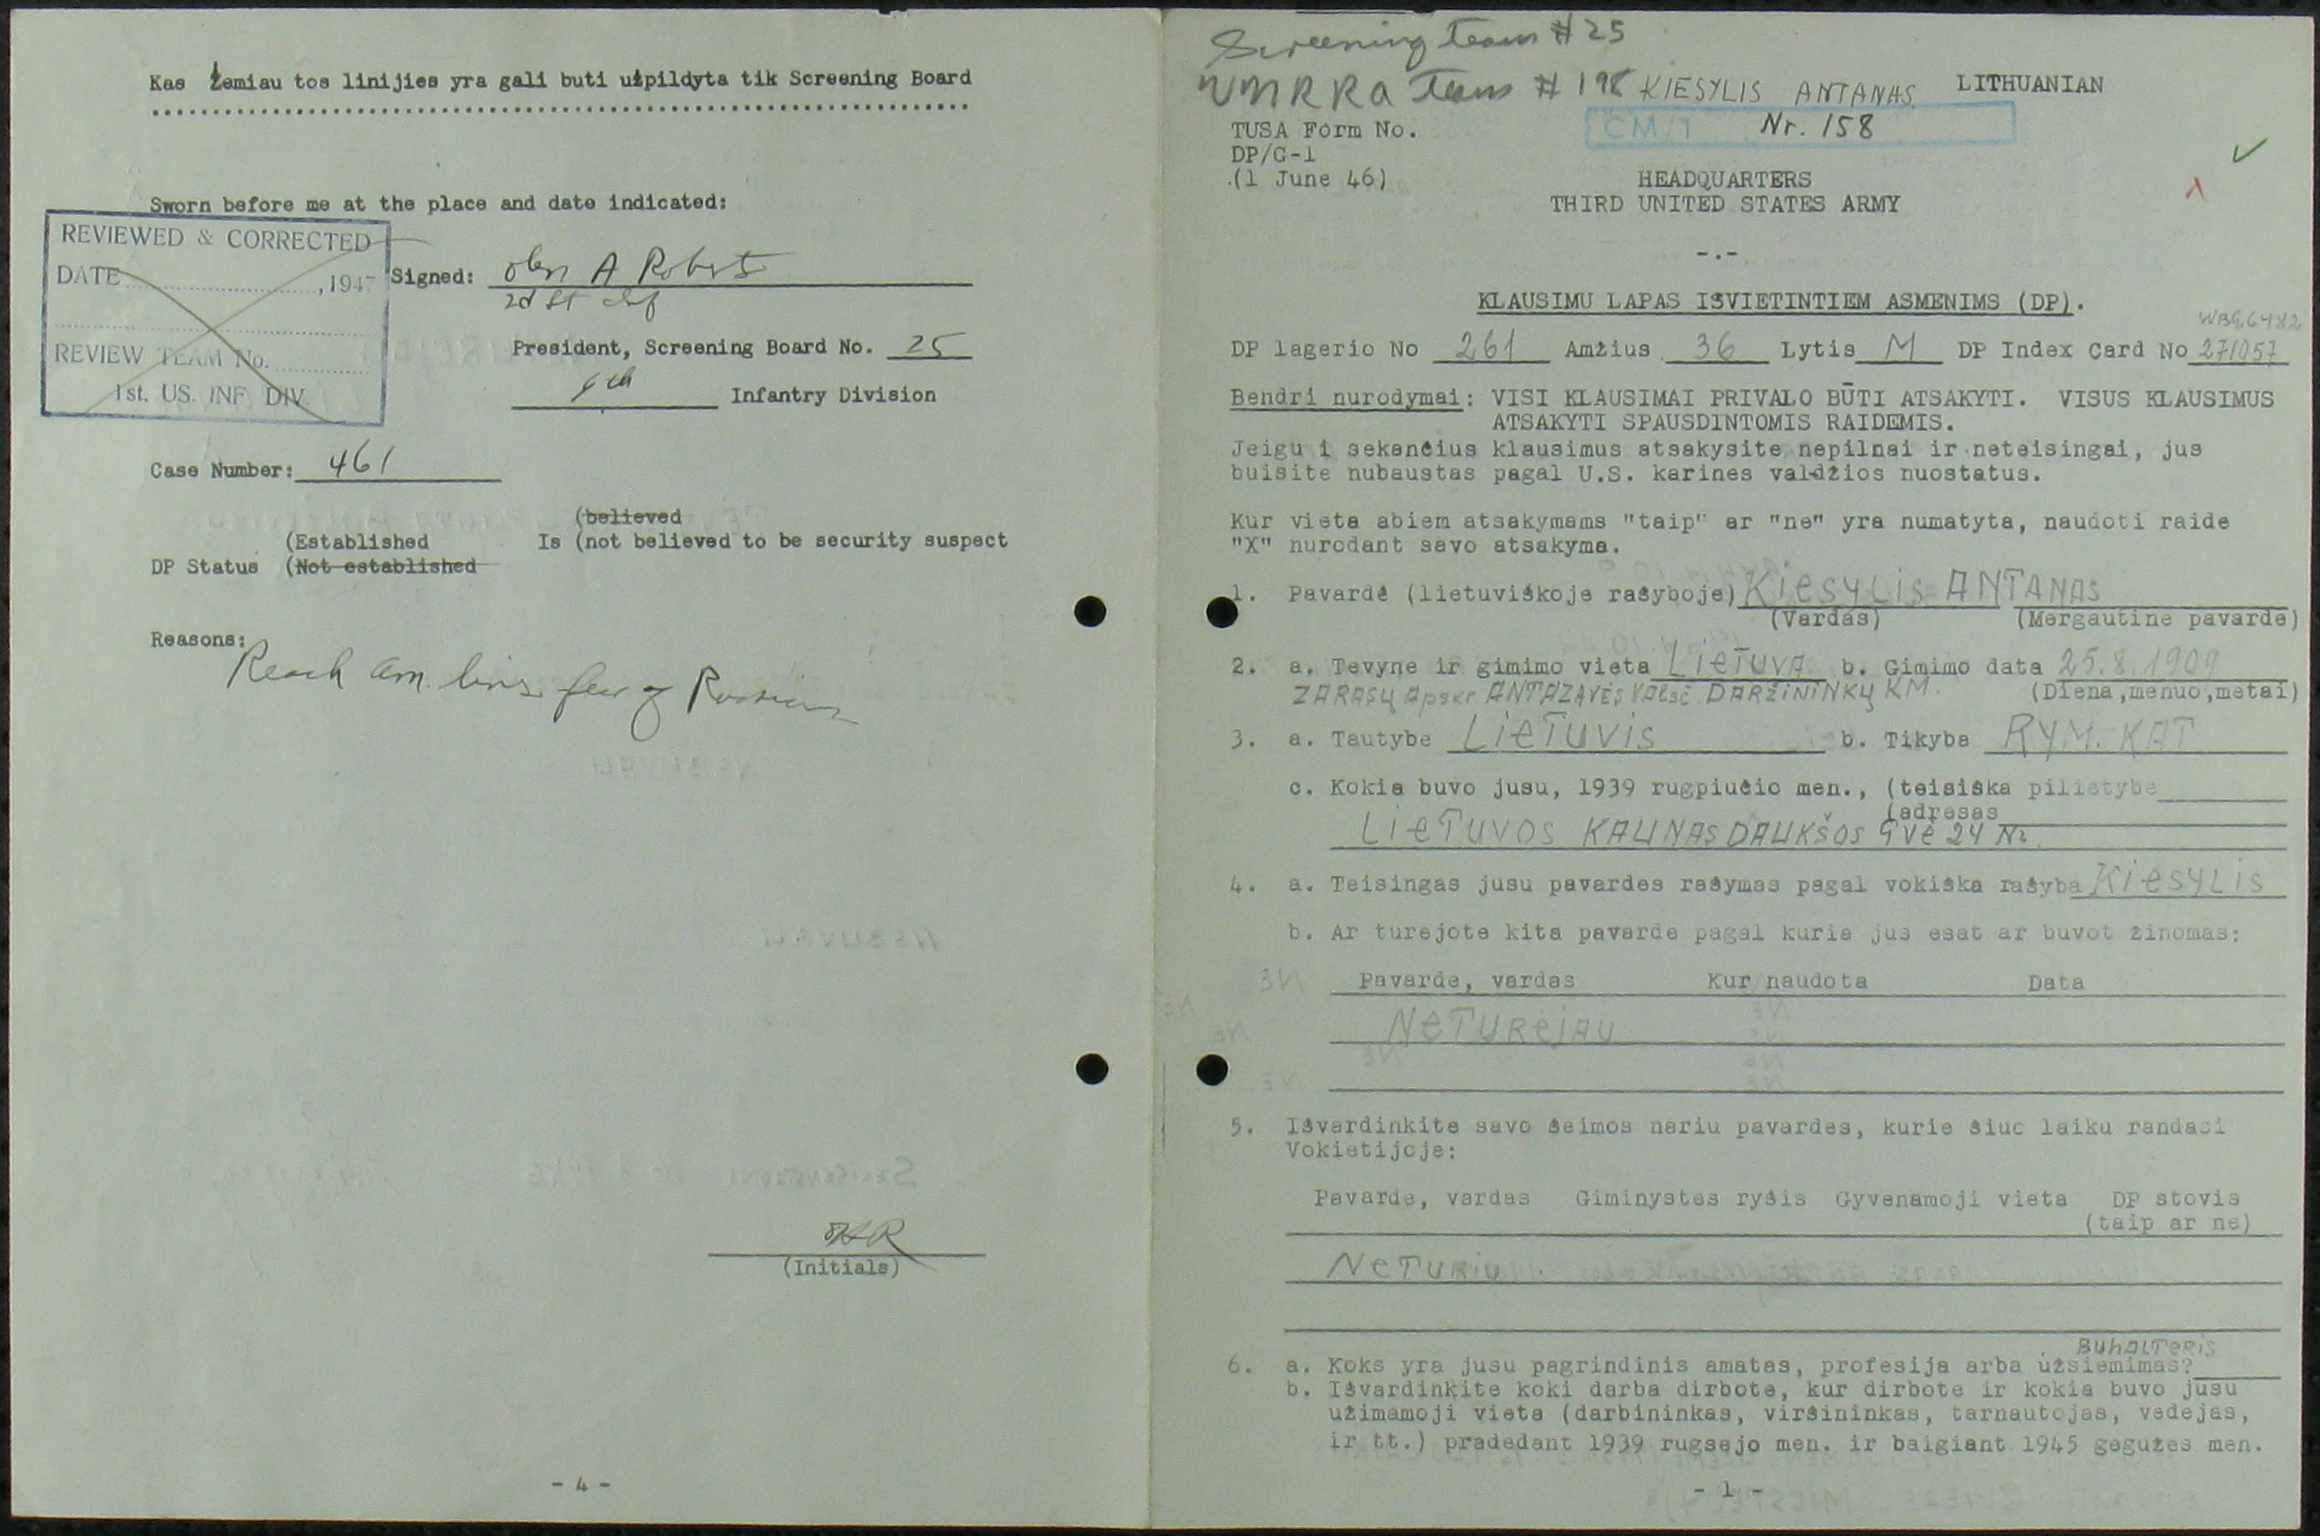 Kas žemiau tos linijies yra gali buti užpildyta tik Screening Board
Sworn before me at the place and date indicated:
REVIEWED & CORRECTED
DATE ..., 1947
REVIEW TEAM No.
1st. US. INF. DIV.
Signed: A Roberts
2d Lt Inf
President, Screening Board No. 25
9th Infantry Division
Case Number: 461
(believed
(Established Is (not believed to be security suspect
DP Status (Not established
Reasons:
Reach am. lines fear of Russians
(Initials)
- 4 -
Screening Team # 25
UNRRA Team # 198 KIESYLIS ANTANAS LITHUANIAN
CM/1 Nr. 158
TUSA Form No.
DP/G-1
(1 June 46)
HEADQUARTERS
THIRD UNITED STATES ARMY
-.-
KLAUSIMU LAPAS IŠVIETINTIEM ASMENIMS (DP).
WBG6482
DP lagerio No 261 Amžius 36 Lytis M DP Index Card No 271057
Bendri nurodymai: VISI KLAUSIMAI PRIVALO BŪTI ATSAKYTI. VISUS KLAUSIMUS
ATSAKYTI SPAUSDINTOMIS RAIDEMIS.
Jeigu i sekančius klausimus atsakysite nepilnai ir neteisingai, jus
buisite nubaustas pagal U.S. karines valdžios nuostatus.
Kur vieta abiem atsakymams "taip" ar "ne" yra numatyta, naudoti raide
"X" nurodant savo atsakyma.
1. Pavardė (lietuviškoje rašyboje) KIESYLIS ANTANAS
(Vardas) (Mergautine pavarde)
2. a. Tevyne ir gimimo vieta LIETUVA b. Gimimo data 25.8.1909
ZARASŲ Apskr ANTAZAVĖS VALSČ DARŽININKŲ KM. (Diena,menuo,metai)
3. a. Tautybe LIETUVIS b. Tikyba RYM. KAT
c. Kokia buvo jusu, 1939 rugpiučio men., (teisiška pilietybe
(adresas
LIETUVOS KAUNAS DAUKŠOS GVĖ 24 Nr
4. a. Teisingas jusu pavardes rašymas pagal vokiška rašyba KIESYLIS
b. Ar turejote kita pavarde pagal kuria jus esat ar buvot žinomas:
Pavarde, vardas Kur naudota Data
NETURĖJAU
5. Išvardinkite savo šeimos nariu pavardes, kurie šiuo laiku randasi
Vokietijoje:
Pavarde, vardas Giminystes ryšis Gyvenamoji vieta DP stovis
(taip ar ne)
NETURIU
BUHALTERIS
6. a. Koks yra jusu pagrindinis amatas, profesija arba užsiemimas?
b. Išvardinkite koki darba dirbote, kur dirbote ir kokia buvo jusu
užimamoji vieta (darbininkas, viršininkas, tarnautojas, vedejas,
ir tt.) pradedant 1939 rugsejo men. ir baigiant 1945 gegužes men.
- 1 -